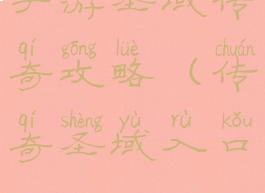 手游圣域传
qí gōng lüè chuán
奇攻略（传
qí shèng yù rù kǒu
奇圣域入口